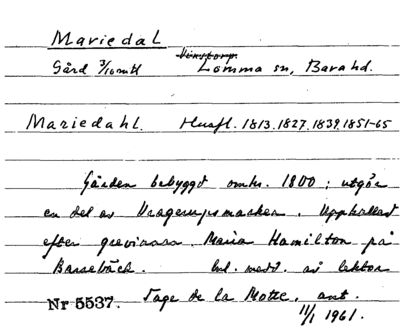 Mariedal
Vinstorp.
Gård 3/16 mtl Lomma sn, Bara hd.
Mariedahl. Husfl. 1813. 1827. 1839. 1851-65
Gården bebyggd omkr. 1800; utgör
en del av Vragerupsmarken. Uppkallad
efter grevinnan Maria Hamilton på
Barsebäck. Enl. medd. av lektor
Nr 5537. Tage de la Motte, ant.
11/1 1961.